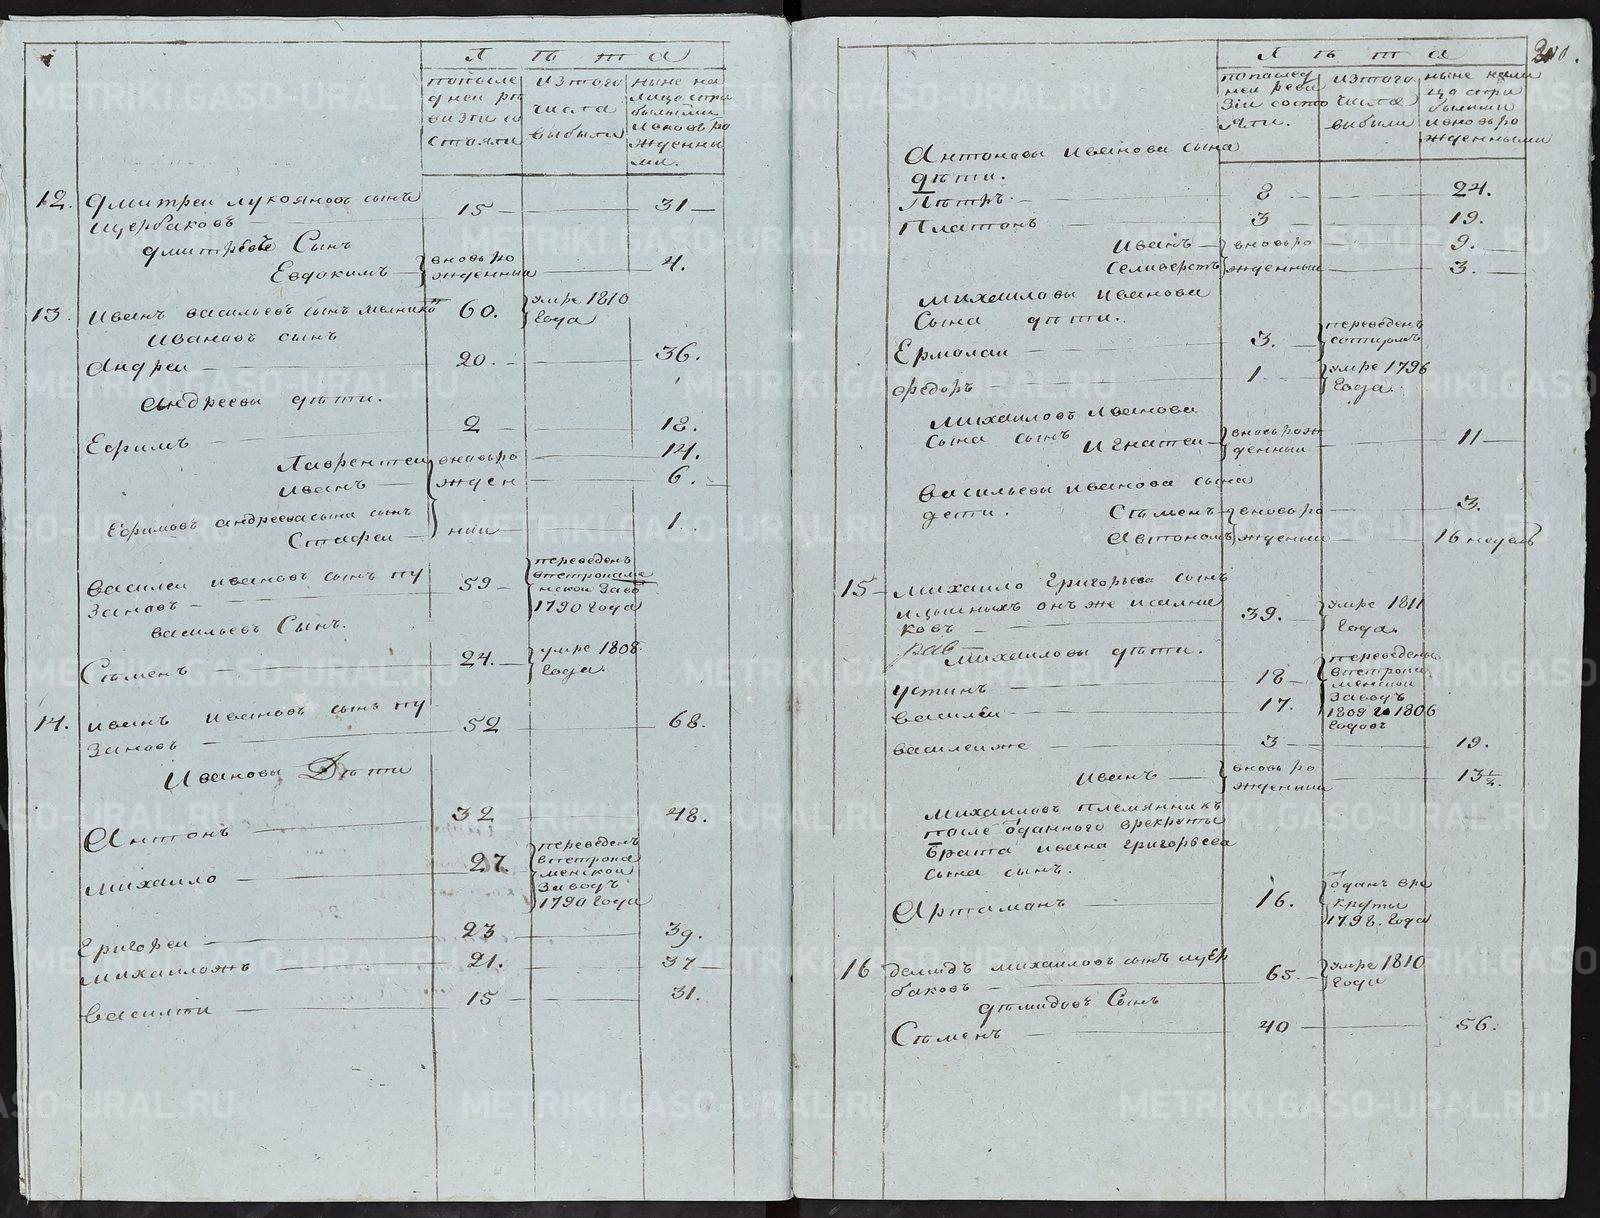 Лѣта
попосле
дней ре
визiи со
стояли
изтого
числа
выбыли
ныне на
лицо спри
былыми
ивновь ро
жденны
ми.
12. Дмитреи лукояновъ сынъ 15 31
щербаковъ
дмитревъ Сынъ
Евдокимъ вновь ро 4.
жденныи
13. Иванъ васильевъ сынъ 60. умре 1810
года
Ивановъ сынъ
Андреи 20. 36.
Андреевы дѣти.
Ефримъ 2 18.
Лаврентеи вновьро 14.
иванъ жден 6.
Ефримовъ андреевасына сынъ
Стафеи нии 1.
василеи ивановъ сынъ пу 59 переведенъ
зановъ впетрокаме
нской заво
1790 года
васильевъ Сынъ.
Сѣменъ 24. умре 1808
года.
14. иванъ ивановъ сынъ пу 52 68.
зановъ
Ивановы Дѣти
Антонъ 32 48.
михаило 27. переведенъ
впетрока
менской
заводъ
1790 года
Григореи 23 39.
михаиложъ 21. 37
василеи 15 31.
300.
Лѣта
попослед
ней реви
зiи состо
яли.
изтого
числа
выбыли
ныне нали
цо спри
былыми
ивновьро
жденными
Антоновы иванова сына
дѣти.
Пѣтръ 8 24.
Платонъ 3 19.
иванъ вновьро 9.
селиверстъ жденныи 3.
михаиловы иванова
сына дѣти.
Ермолаи 3. переведенъ
сотцомъ
федоръ 1 умре 1796
года
михаиловъ иванова
сына сынъ
игнатеи вновьрож 11
денныи
васильевы иванова сына
дети.
Сѣменъ вновьро 3.
автономъ жденыи 16 недель
15 михаило григорьева сынъ
39. умре 1811
ковъ года.
михаиловы дѣти.
устинъ 18 переведены
василеи 17. впетрока
менской
заводъ
1809 1806
годовъ
василеиже 3 19.
иванъ вновь ро 13½.
жденныи
михаиловъ племянникъ
после отданного врекруты
брата ивана григорьева
сына сынъ.
Артаманъ 16. отданъ вре
круты
1798. года
16 демидъ михаиловъ сынъ щер 65. умре 1810
баковъ года
дѣмидовъ Сынъ
Сѣменъ 40 56.
METRIKI.GASO-URAL.RU